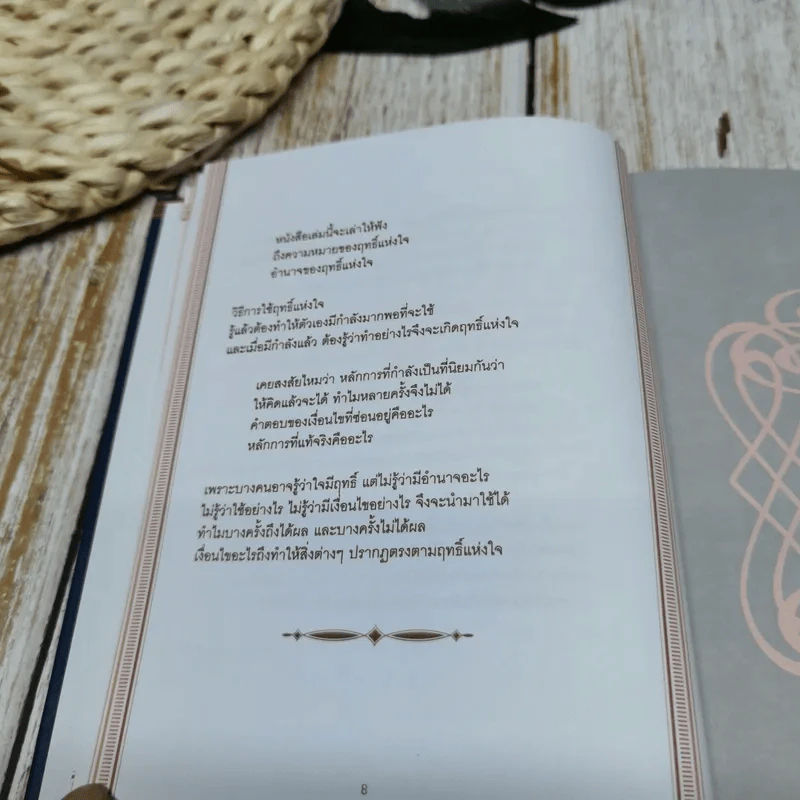 หนังสือเล่มนี้จะเล่าให้ฟัง
ถึงความหมายของฤทธิ์แห่งใจ
อำนาจของฤทธิ์แห่งใจ
วิธีการใช้ฤทธิ์แห่งใจ
รู้แล้วต้องทำให้ตัวเองมีกำลังมากพอที่จะใช้
และเมื่อมีกำลังแล้ว ต้องรู้ว่าทำอย่างไรจึงจะเกิดฤทธิ์แห่งใจ
เคยสงสัยไหมว่า หลักการที่กำลังเป็นที่นิยมกันว่า
ให้คิดแล้วจะได้ ทำไมหลายครั้งจึงไม่ได้
คำตอบของเงื่อนไขที่ซ่อนอยู่คืออะไร
หลักการที่แท้จริงคืออะไร
เพราะบางคนอาจรู้ว่าใจมีฤทธิ์ แต่ไม่รู้ว่ามีอำนาจอะไร
ไม่รู้ว่าใช้อย่างไร ไม่รู้ว่ามีเงื่อนไขอย่างไร จึงจะนำมาใช้ได้
ทำไมบางครั้งถึงได้ผล และบางครั้งไม่ได้ผล
เงื่อนไขอะไรถึงทำให้สิ่งต่างๆ ปรากฏตรงตามฤทธิ์แห่งใจ
8